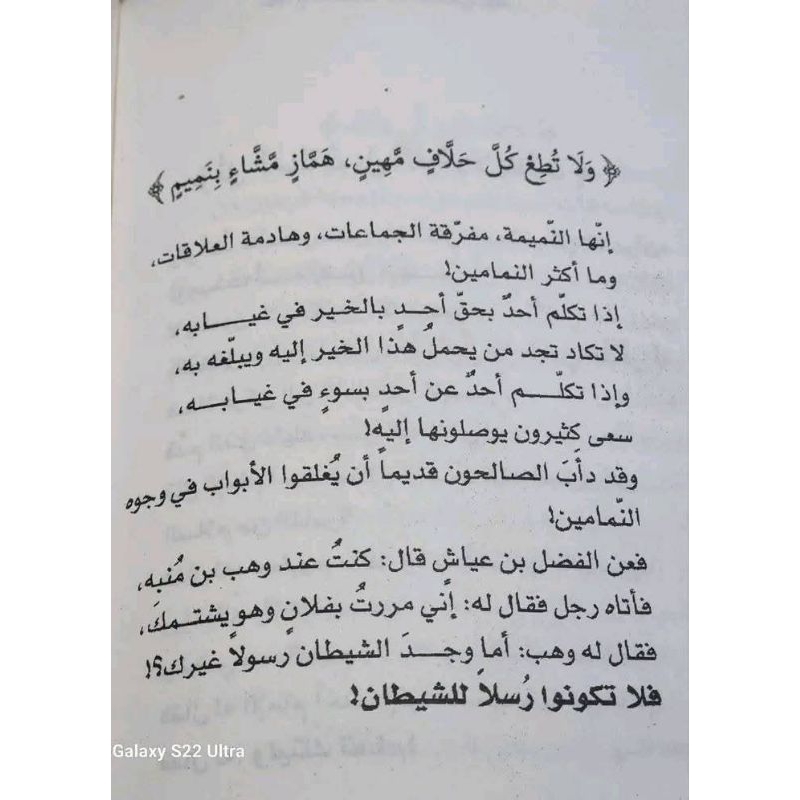 ﴿ وَلَا تُطِعْ كُلَّ حَلَّافٍ مَّهِينٍ، هَمَّازٍ مَّشَّاءٍ بِنَمِيمٍ ﴾
إنّها النّميمة، مفرّقة الجماعات، وهادمة العلاقات،
وما أكثر النمامين!
إذا تكلّم أحدٌ بحقّ أحدٍ بالخير في غيابه،
لا تكاد تجد من يحملُ هذا الخير إليه ويبلّغه به،
وإذا تكلّم أحدٌ عن أحدٍ بسوءٍ في غيابه،
سعى كثيرون يوصلونها إليه!
وقد دأبَ الصالحون قديماً أن يُغلقوا الأبواب في وجوه
النّمامين!
فعن الفضل بن عياش قال: كنتُ عند وهب بن مُنبه،
فأتاه رجل فقال له: إنّي مررتُ بفلانٍ وهو يشتمكَ،
فقال له وهب: أما وجدَ الشيطان رسولاً غيرك؟!
فلا تكونوا رُسلاً للشيطان!
Galaxy S22 Ultra